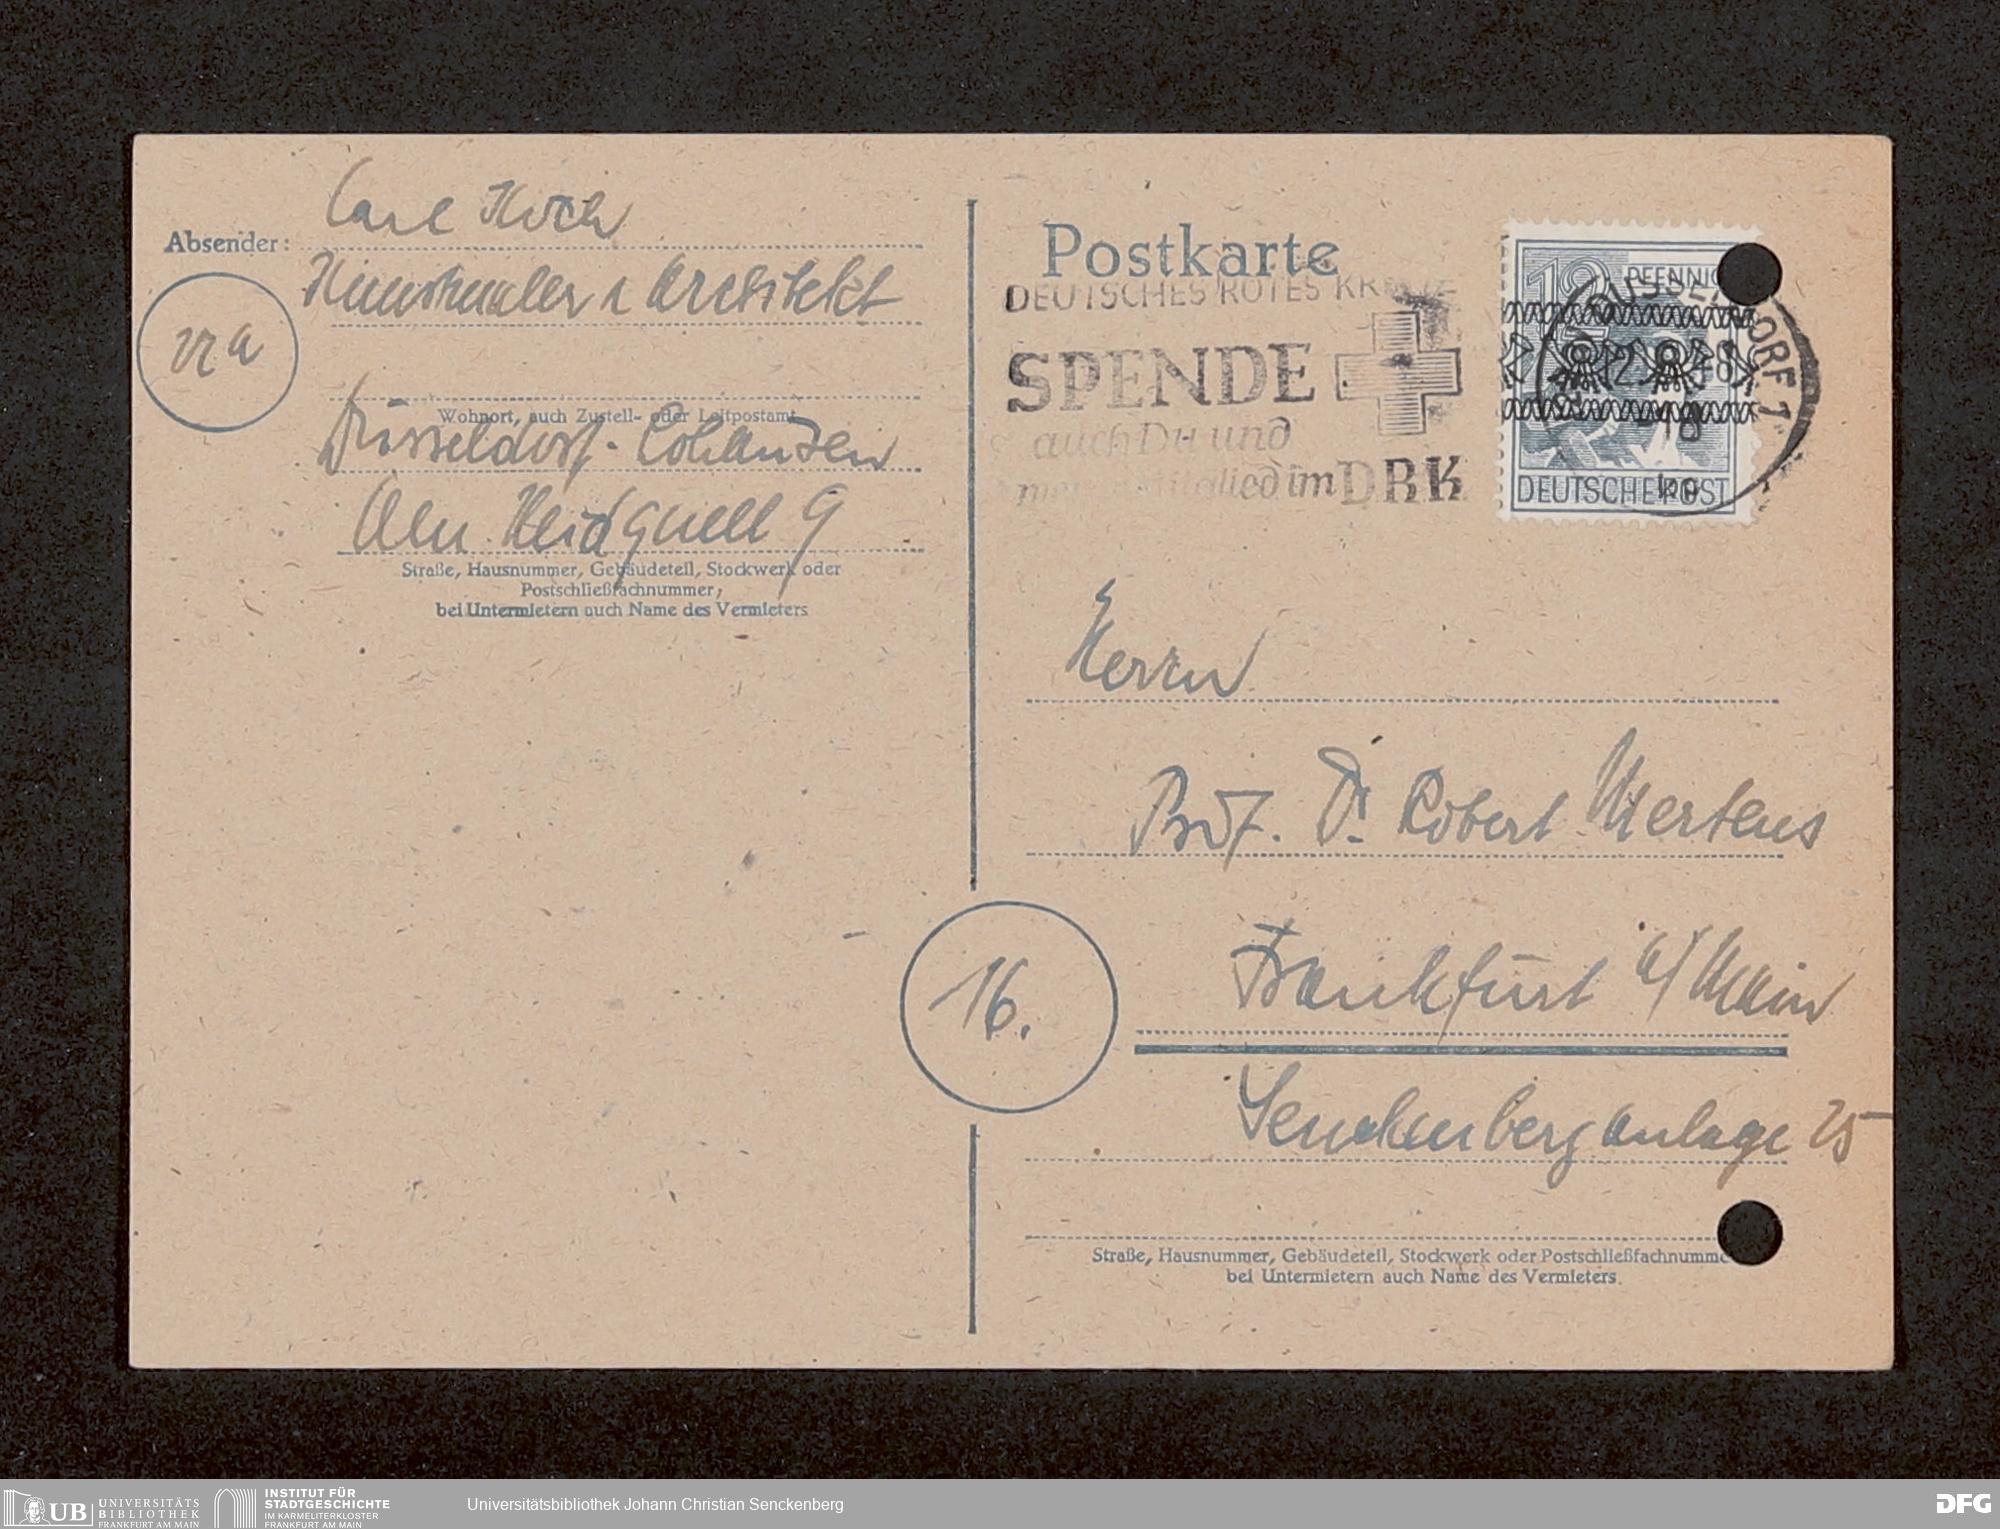 Carl Koch
Absender:
Kunstmaler & Architekt
22a
Wohnort, auch Zustell- oder Leitpostamt
Düsseldorf-Lohausen
Am Heidquell 9
Straße, Hausnummer, Gebäudeteil, Stockwerk oder
Postschließfachnummer,
bei Untermietern auch Name des Vermieters
Postkarte
DEUTSCHES ROTES KREUZ
SPENDE
auch Du und
Mitglied im DRK
12 PFENNIG
DÜSSELDORF 1
DEUTSCHE POST
Herrn
Prof. Dr. Robert Mertens
16.
Frankfurt a/Main
Senckenberganlage 25
Straße, Hausnummer, Gebäudeteil, Stockwerk oder Postschließfachnumme
bei Untermietern auch Name des Vermieters.
UB UNIVERSITÄTS
BIBLIOTHEK
FRANKFURT AM MAIN
INSTITUT FÜR
STADTGESCHICHTE
IM KARMELITERKLOSTER
FRANKFURT AM MAIN
Universitätsbibliothek Johann Christian Senckenberg
DFG